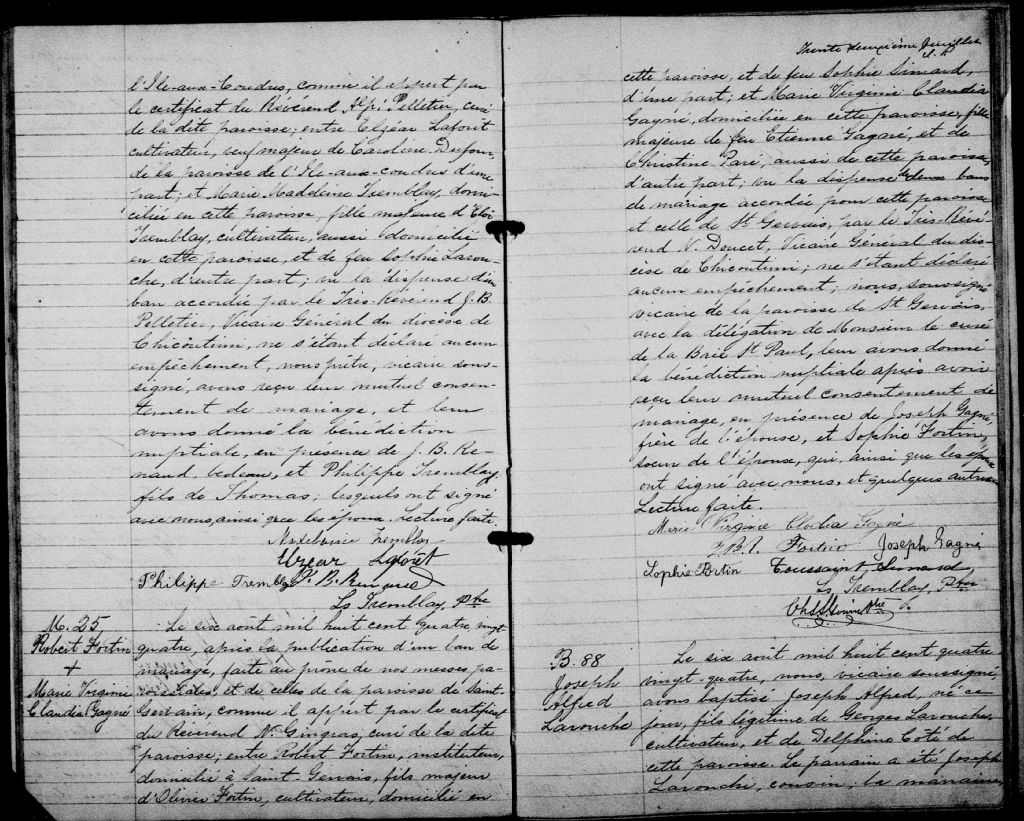 l'Ile-aux-Coudres, comme il appert par
le certificat du Révérend Alp. Pelletier, curé
de la dite paroisse; entre Elzéar Laforêt
cultivateur, veuf majeur de Caroline Dufour,
de la paroisse de l'Ile-aux-coudres d'une
part; et Marie Madeleine Tremblay, domi-
ciliée en cette paroisse, fille majeure d'Eloi
Tremblay, cultivateur, aussi domicilié
en cette paroisse, et de feu Sophie Larou-
che, d'autre part; vu la dispense d'un
ban accordée par le Très-Révérend J. B.
Pelletier, Vicaire Général du diocèse de
Chicoutimi, ne s'étant déclaré aucun
empêchement, nous prêtre, vicaire sous-
signé, avons reçu leur mutuel consen-
tement de mariage, et leur
avons donné la bénédiction
nuptiale, en présence de J. B. Re-
naud, bedeau, et Philippe Tremblay
fils de Thomas; lesquels ont signé
avec nous ainsi que les époux. Lecture faite.
Madeleine Tremblay
Elzear Laforêt
Philippe Tremblay J. B. Renaud
Ls Tremblay, Ptre
M. 25
Robert Fortin
+
Marie Virginie
Claudia Gagné
Le six aout mil huit cent quatre vingt
quatre, après la publication d'un ban de
mariage, faite au prône de nos messes pa-
roissiales, et de celles de la paroisse de Saint
Gervais, comme il appert par le certificat
du Révérend N. Gingras, curé de la dite
paroisse; entre Robert Fortin, instituteur,
domicilié à Saint-Gervais, fils majeur
d'Olivier Fortin, cultivateur, domicilié en
Trente deuxième feuillet
cette paroisse, et de feu Sophie Simard,
d'une part; et Marie Virginie Claudia
Gagné, domiciliée en cette paroisse, fille
majeure de feu Etienne Gagné, et de
Christine Paré, aussi de cette paroisse,
d'autre part; vu la dispense de deux bans
de mariage accordée pour cette paroisse
et celle de St Gervais, par le Très-Révé-
rend N. Doucet, Vicaire Général du dio-
cèse de Chicoutimi; ne s'étant déclaré
aucun empêchement; nous, soussigné
vicaire de la paroisse de St Gervais,
avec la délégation de Monsieur le curé
de la Baie St Paul, leur avons donné
la bénédiction nuptiale après avoir
reçu leur mutuel consentement de
mariage, en présence de Joseph Gagné,
frère de l'épouse, et Sophie Fortin,
soeur de l'épouse, qui, ainsi que les époux
ont signé avec nous, et quelques autres.
Lecture faite.
Marie Virginie Clodia Gagné
Fortin Joseph Gagné
Sophie Fortin Toussaint Simard
Ls Tremblay, Ptre
B. 88
Joseph
Alfred
Larouche
Le six août mil huit cent quatre
vingt-quatre, nous, vicaire soussigné,
avons baptisé Joseph Alfred, né ce
jour, fils légitime de Georges Larouche,
cultivateur, et de Delphine Coté de
cette paroisse. Le parrain a été Joseph
Larouche, cousin, la marraine,